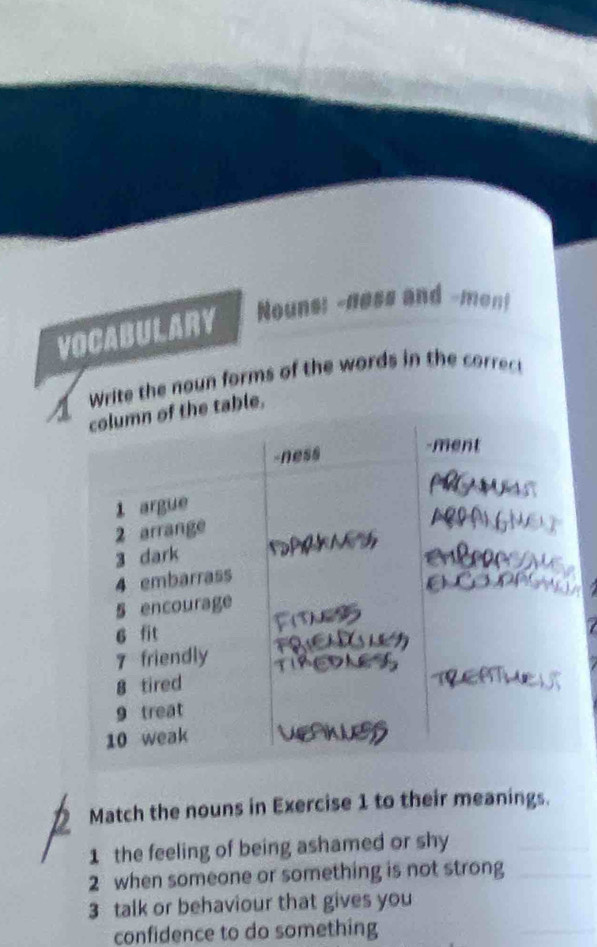 VOCABULARY Nouns: -ness and -ment
1 Write the noun forms of the words in the correct
column of the table.
-ness -ment
1 argue
2 arrange
3 dark DARKNESS
4 embarrass
5 encourage
6 fit FITNESS
7 friendly
8 tired TIREDNESS
9 treat TREATMENT
10 weak WEAKNESS
2 Match the nouns in Exercise 1 to their meanings.
1 the feeling of being ashamed or shy
2 when someone or something is not strong
3 talk or behaviour that gives you
confidence to do something